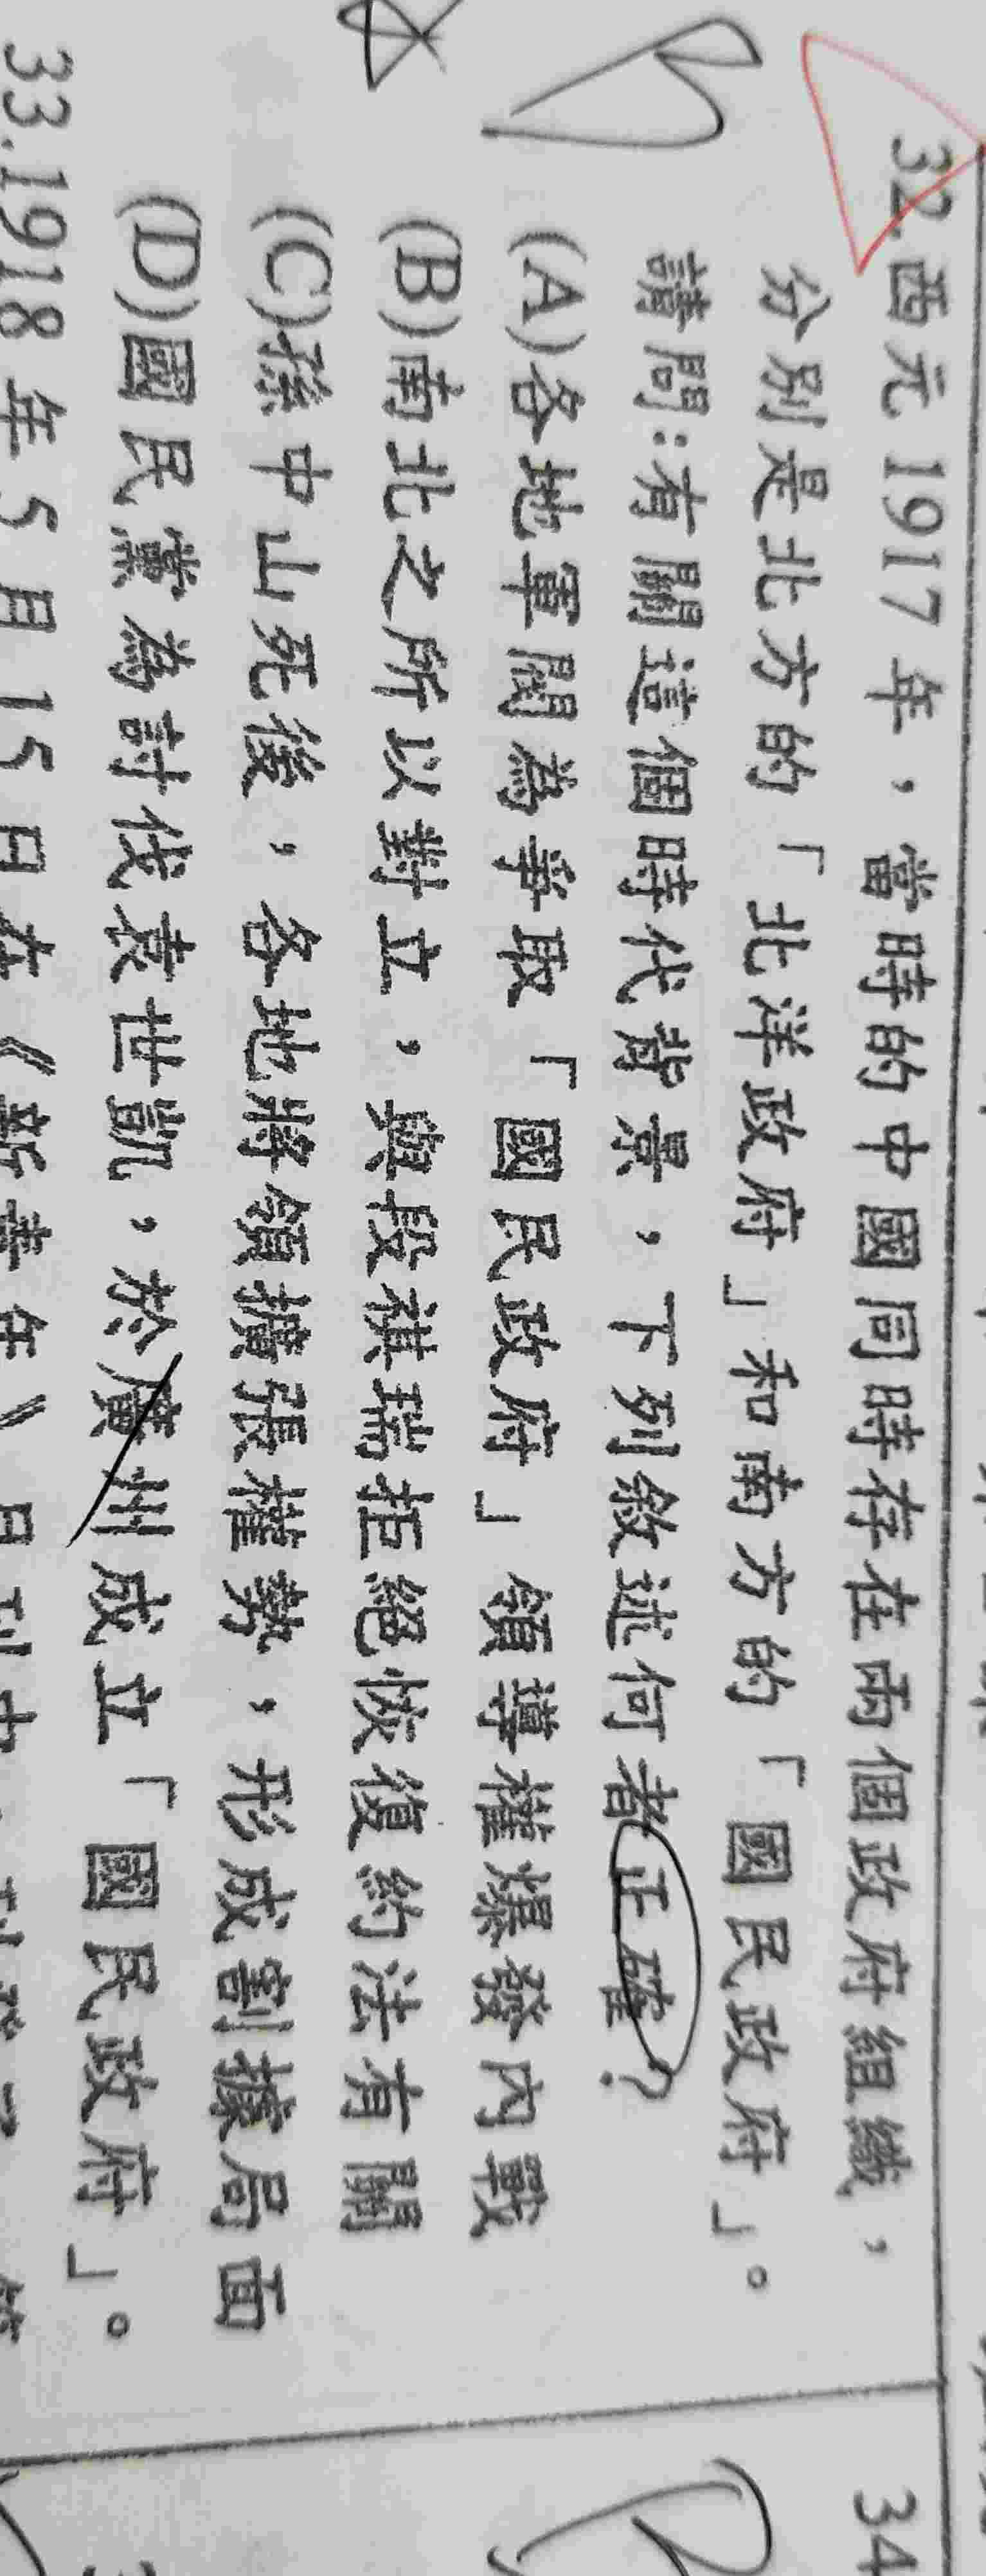 32.西元1917年，當時的中國同時存在兩個政府組織，
分別是北方的「北洋政府」和南方的「國民政府」。
請問：有關這個時代背景，下列敘述何者正確？
(A)各地軍閥為爭取「國民政府」領導權爆發內戰
(B)南北之所以對立，與段祺瑞拒絕恢復約法有關
(C)孫中山死後，各地將領擴張權勢，形成割據局面
(D)國民黨為討伐袁世凱，於廣州成立「國民政府」。
33.1918年5月15日在《新青年》月刊中
34